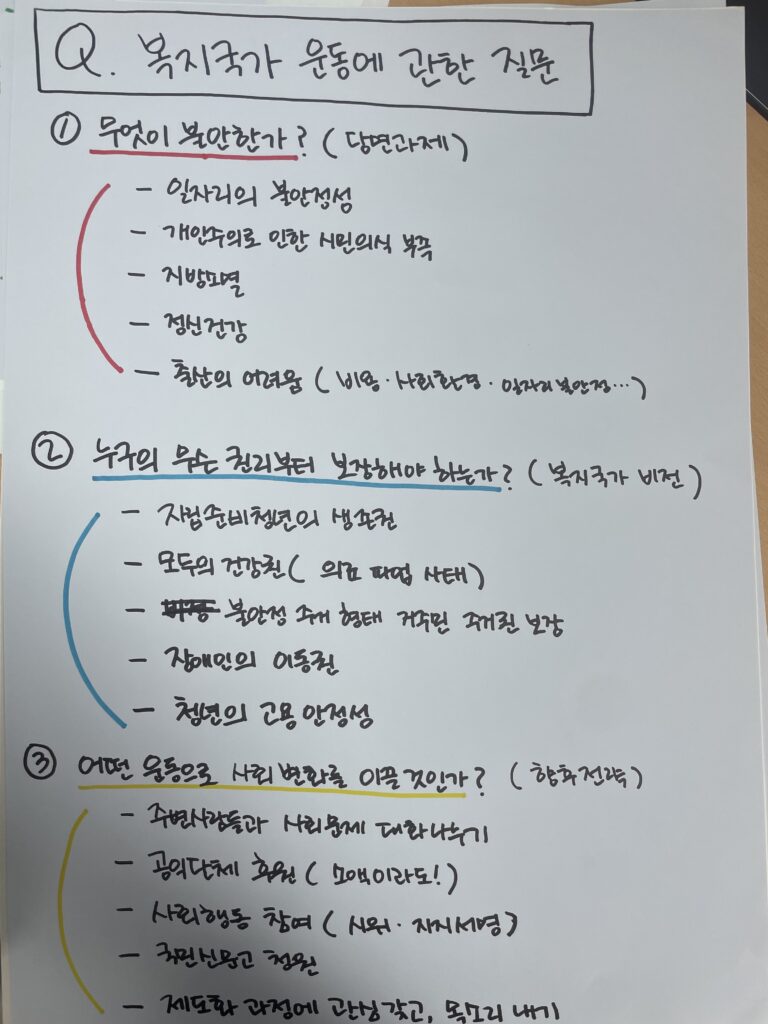 Q. 복지국가 운동에 관한 질문
① 무엇이 불안한가? (당면과제)
- 일자리의 불안정성
- 개인주의로 인한 시민의식 부족
- 지방소멸
- 정신건강
- 출산의 어려움 (비용·사회환경·일자리불안정...)
② 누구의 무슨 권리부터 보장해야 하는가? (복지국가 비전)
- 자립준비청년의 생존권
- 모두의 건강권 (의료 파업 사태)
- 불안정 주거 형태 거주민 주거권 보장
- 장애인의 이동권
- 청년의 고용안정성
③ 어떤 운동으로 사회변화를 이끌것인가? (향후전략)
- 주변사람들과 사회문제 대화나누기
- 공익단체 후원 (소액이라도!)
- 사회행동 참여 (시위·지지서명)
- 국민신문고 청원
- 제도화 과정에 관심갖고, 목소리 내기